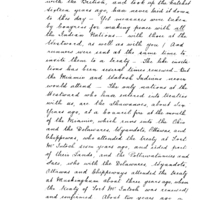 with the British, and took up the hatchet
sixteen years ago, has never laid it down
to this day — Yet measures were taken
by Congress for making peace with all
the Indian Nations — with those at the
Westward, as well as with you; And
runners were sent at the same time to
invite them to a treaty — The like invita-
tions have been several times renewed — But
the Miamis and Wabash Indians never
would attend — The only nations at the
Westward who have entered into treaties
with us, are the Shawanoes, about six
years ago, at a council fire at the mouth
of the Miamis, which runs into the Ohio
and the Delawares, Wyandots, Ottawas and
Chippewas, who attended the treaty at Fort
McIntosh seven years ago, and sold part
of their lands, and the
also, with the Delawares, Wyandots,
Ottawas and Chippeways attended the treaty
at Muskingham about three years ago when
the treaty of Fort McIntosh was renewed
and confirmed. About two years ago —